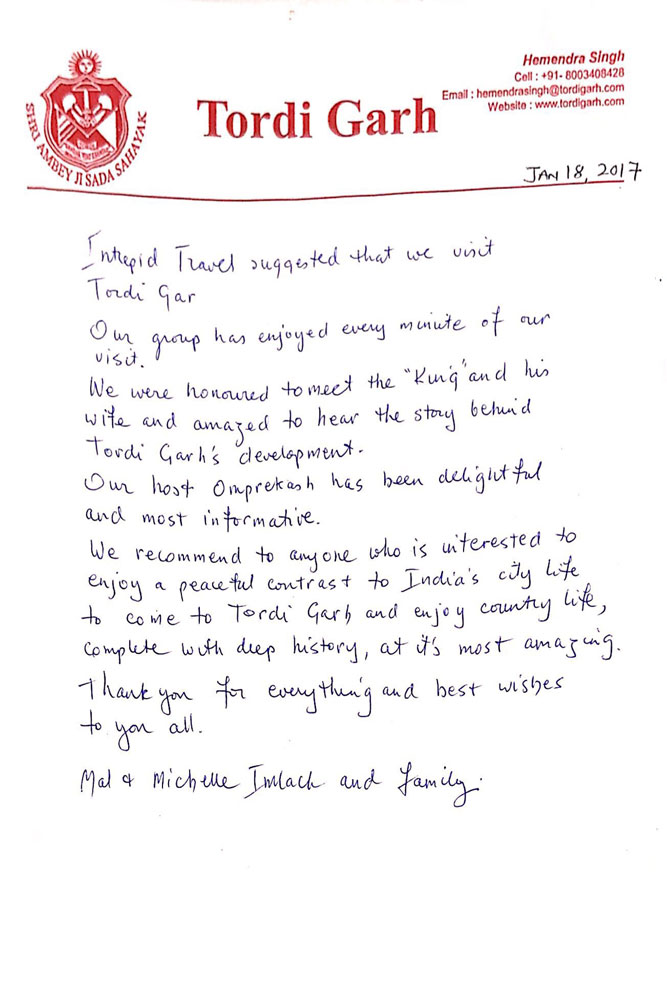 Hemendra Singh
Cell : +91- 8003408428
Email : hemendrasingh@tordigarh.com
Website : www.tordigarh.com
Tordi Garh
SHRI AMBEY JI SADA SAHAYAK
JAN 18, 2017
Intrepid Travel suggested that we visit
Tordi Gar
Our group has enjoyed every minute of our
visit.
We were honoured to meet the "King" and his
wife and amazed to hear the story behind
Tordi Garh's development.
Our host Omprekash has been delightful
and most informative.
We recommend to anyone who is interested to
enjoy a peaceful contrast to India's city life
to come to Tordi Garh and enjoy country life,
complete with deep history, at it's most amazing.
Thank you for everything and best wishes
to you all.
Mal & Michelle Imlach and family.